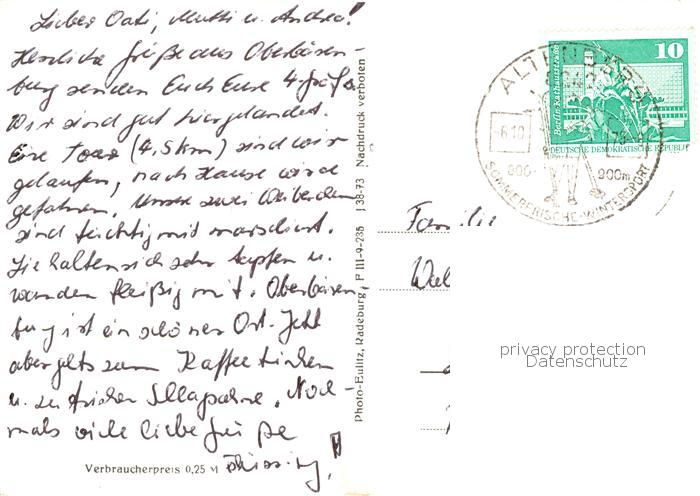 Lieber Vati, Mutti u. Andrea!
Herzliche Grüße aus Oberbären-
burg senden Euch Eure 4
Wir sind gut hier gelandet.
Eine Tour (4,5 km) sind wir
gelaufen, nach Hause wird
gefahren. Unsere zwei
sind tüchtig mit marschiert.
Sie halten sich sehr tapfer u.
wandern fleißig mit. Oberbären-
burg ist ein schöner Ort. Jetzt
aber gehts zum Kaffee trinken
u. zu frischer Noch-
mals viele liebe Grüße
Verbraucherpreis 0,25 M
Photo-Eulitz, Radeburg, P III-9-235 J 38-73 Nachdruck verboten
Familie
Wal
ALTENBERG
6.10
800-
900m
SOMMERFRISCHE-WINTERSPORT
10
Berlin, Rathausstraße
DEUTSCHE DEMOKRATISCHE REPUBLIK
privacy protection
Datenschutz